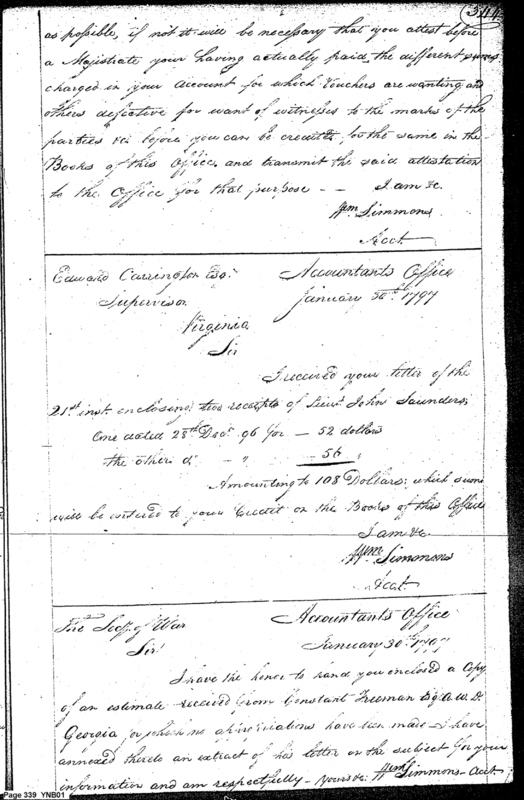 344
as possible, if not it will be necessary that you attest before
a Majestrate your having actually paid the different sums
charged in your account for which Vouchers are wanting and
others defective for want of witnesses to the marks of the
parties &c before you can be credited for the same in the
Books of this Office, and transmit the said attestation
to the Office for that purpose - - I am &c.
Wm Simmons
Acct.
Edward Carrington Esqr. Accountants Office
Supervisor January 30th 1797
Virginia
Sir
I received your letter of the
21st inst. enclosing two receipts of Lieut. John Saunders,
One dated 28th Decr. 96 for - 52 dollars
the other do - " 56
Amounting to 108 Dollars; which sum
will be entered to your Credit on the Books of this Office
I am &c.
Wm Simmons
Acct.
The Secy. of War Accountants Office
Sir January 30th 1797
I have the honor to hand you enclosed a Copy
of an estimate received from Constant Freeman Esq A. W. D.
Georgia for which no appropriations have been made I have
annexed thereto an extract of his letter on the subject for your
information and am respectfully. Yours &c. Wm Simmons Acct.
Page 339 YNB01